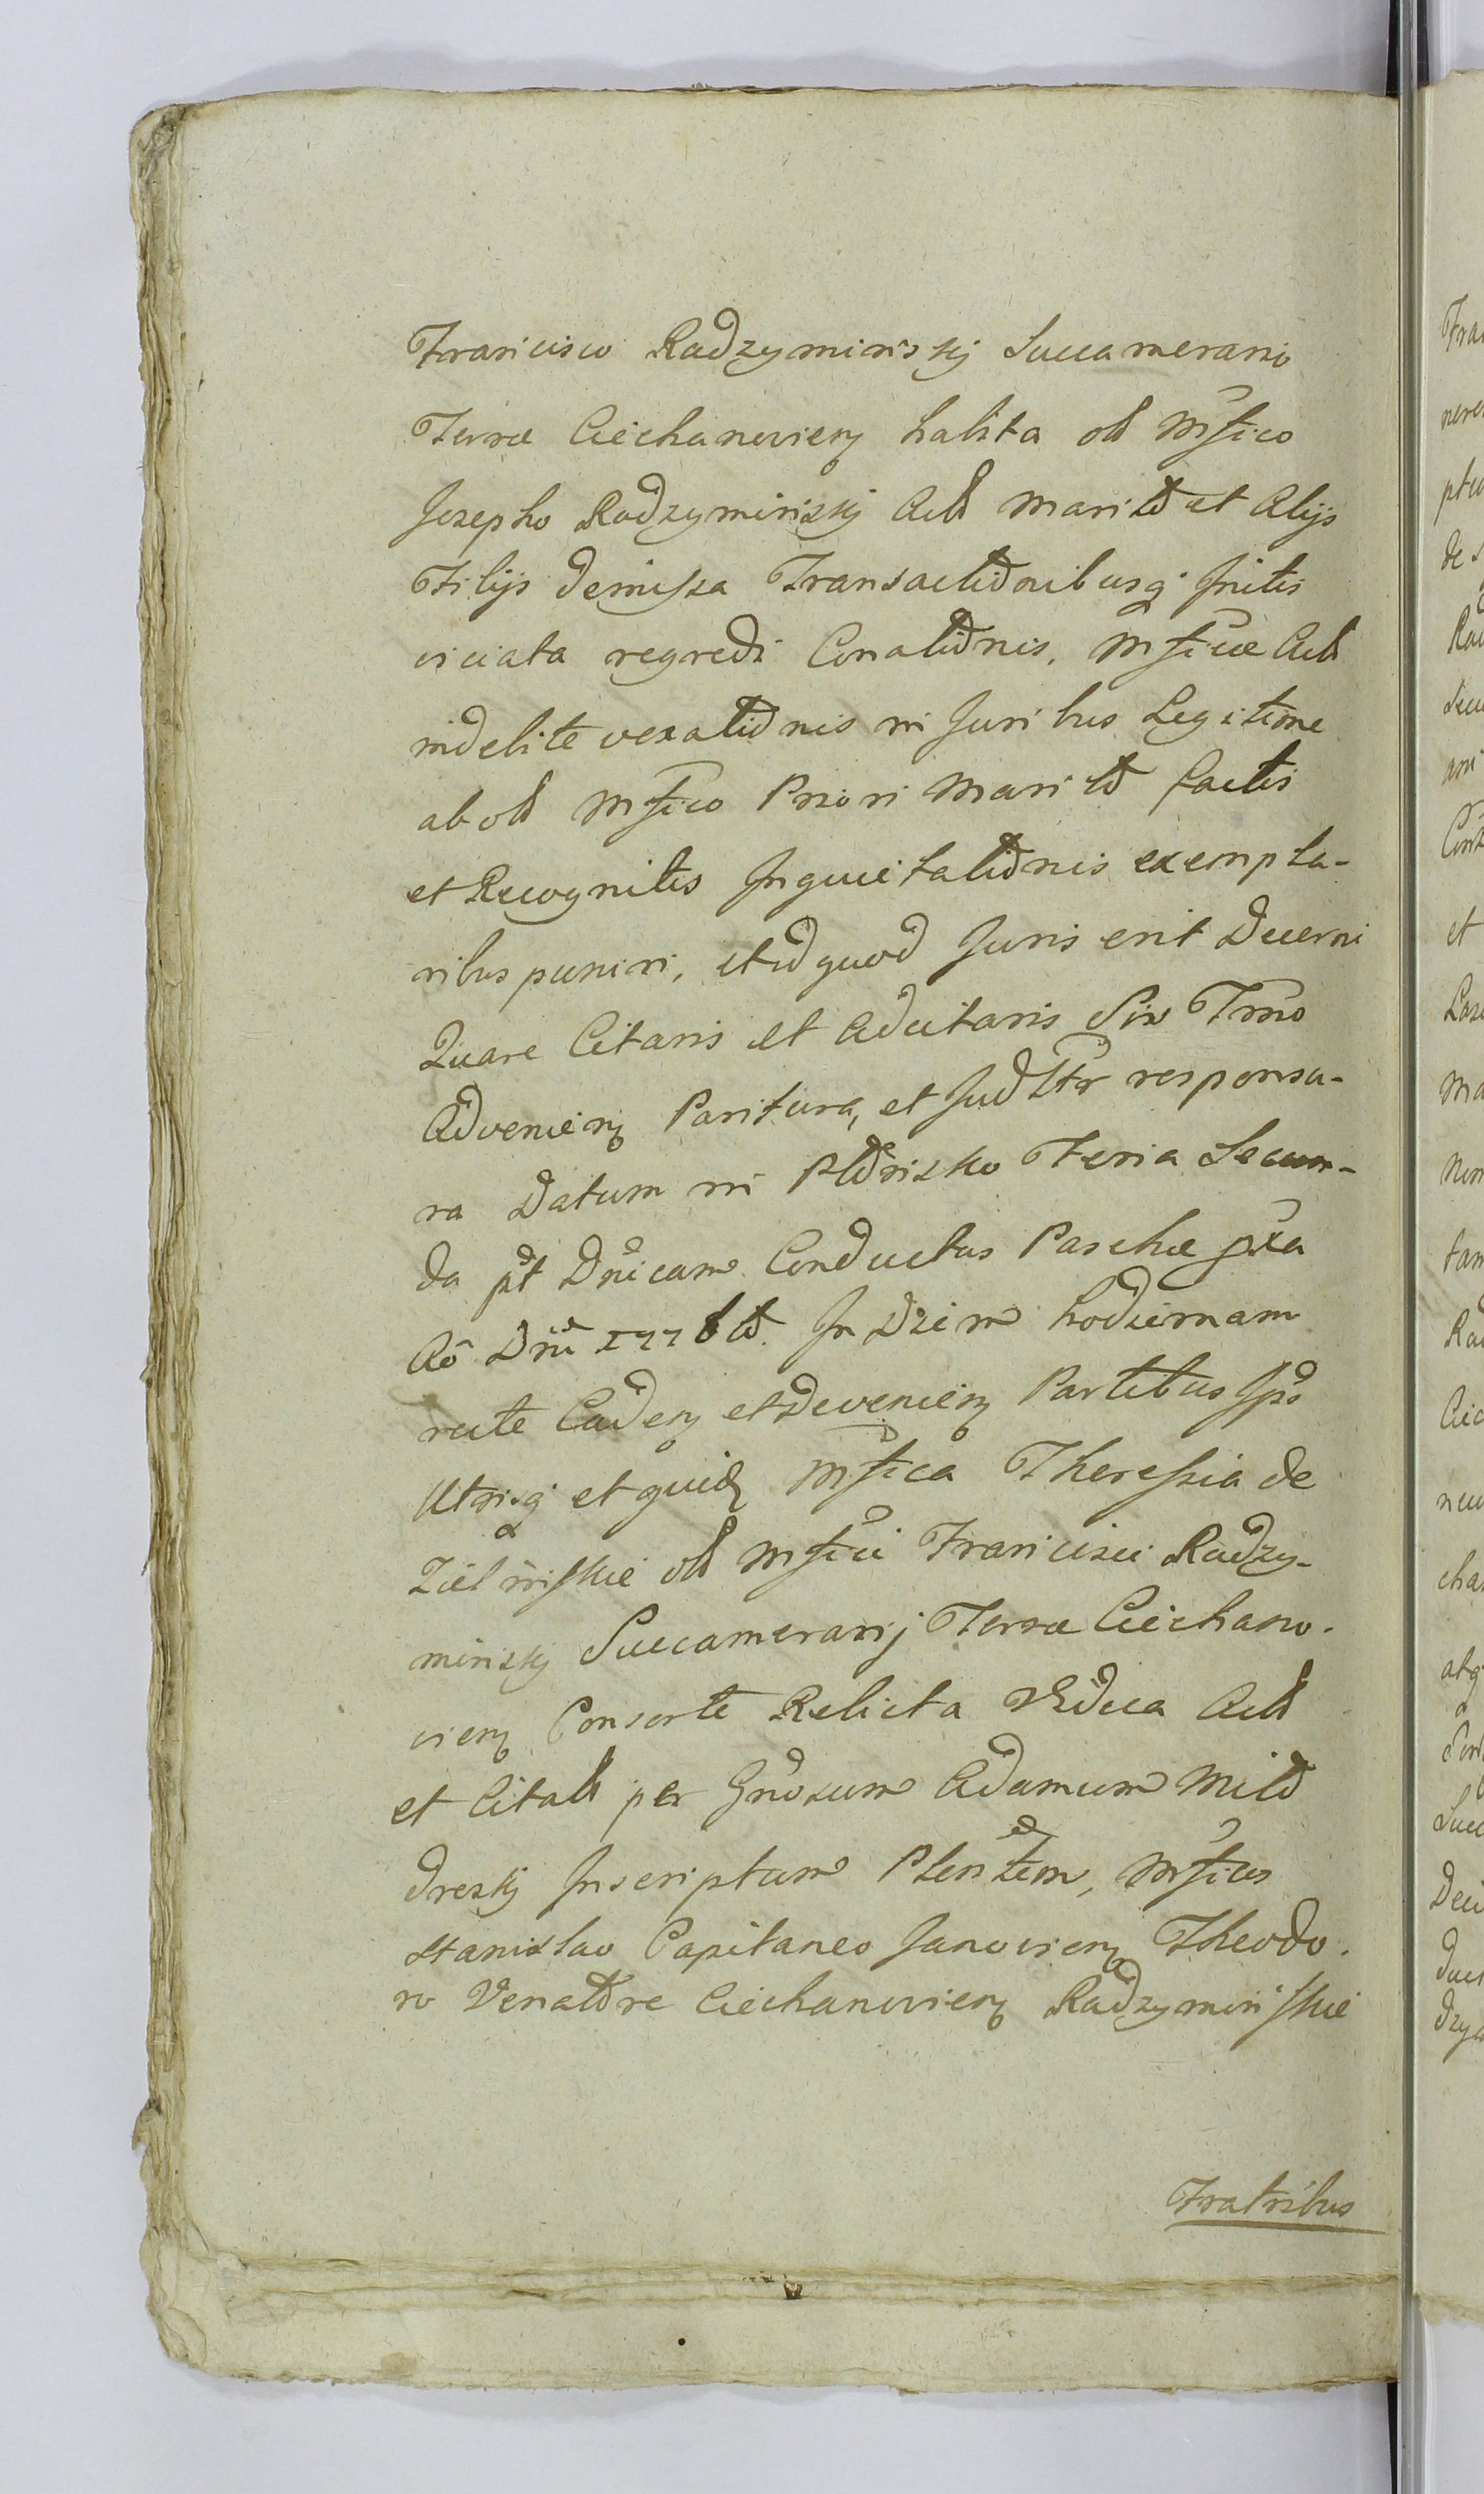 Francisco Radzyminskj Succamerario
Terræ Ciechanovien habita olim Mfico
Josepho Radzyminskj Actt Marito et Alijs
Filijs demissa Transactionibusq Initis
viciata regredi Conationis, Mficæ Actt
indebite vexationis in Juribus Legitime
ab olim Mfico Priori Marito factis
et Recognitis Inquietationis exempla-
ribus puniri, et id quod Juris erit Decerni
Quare Citaris et Adcitaris Sis Trno
Advenien Paritura, et Judltr responsu-
ra Datum in Płońsko Feria Secun-
da pt Dnicam Conductus Paschæ pxa
Ao Dni 1776to. In Diem hodiernam
recte Caden et Devenien Partibus Ips
Utrisq et quid Mfica Theressia de
Zielinskie olim Mfici Francisci Radzy-
minskj Succamerarij Terræ Ciechano-
vien Consorte Relicta Vidua Actt
et Citatt per Gnosum Adamum Mło
dreskj Inscriptum Plentem, Mficus
Stanislao Capitaneo Janovien Theodo-
ro Venatore Ciechanovien Radzyminskie
Fratribus